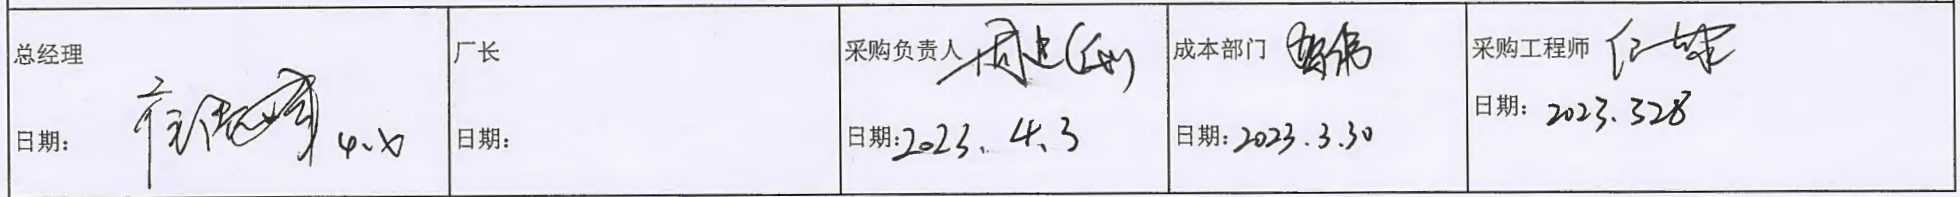 总经理
日期:
厂长
日期:
采购负责人
日期:2023.4.3
成本部门
日期:2023.3.30
采购工程师
日期:2023.328